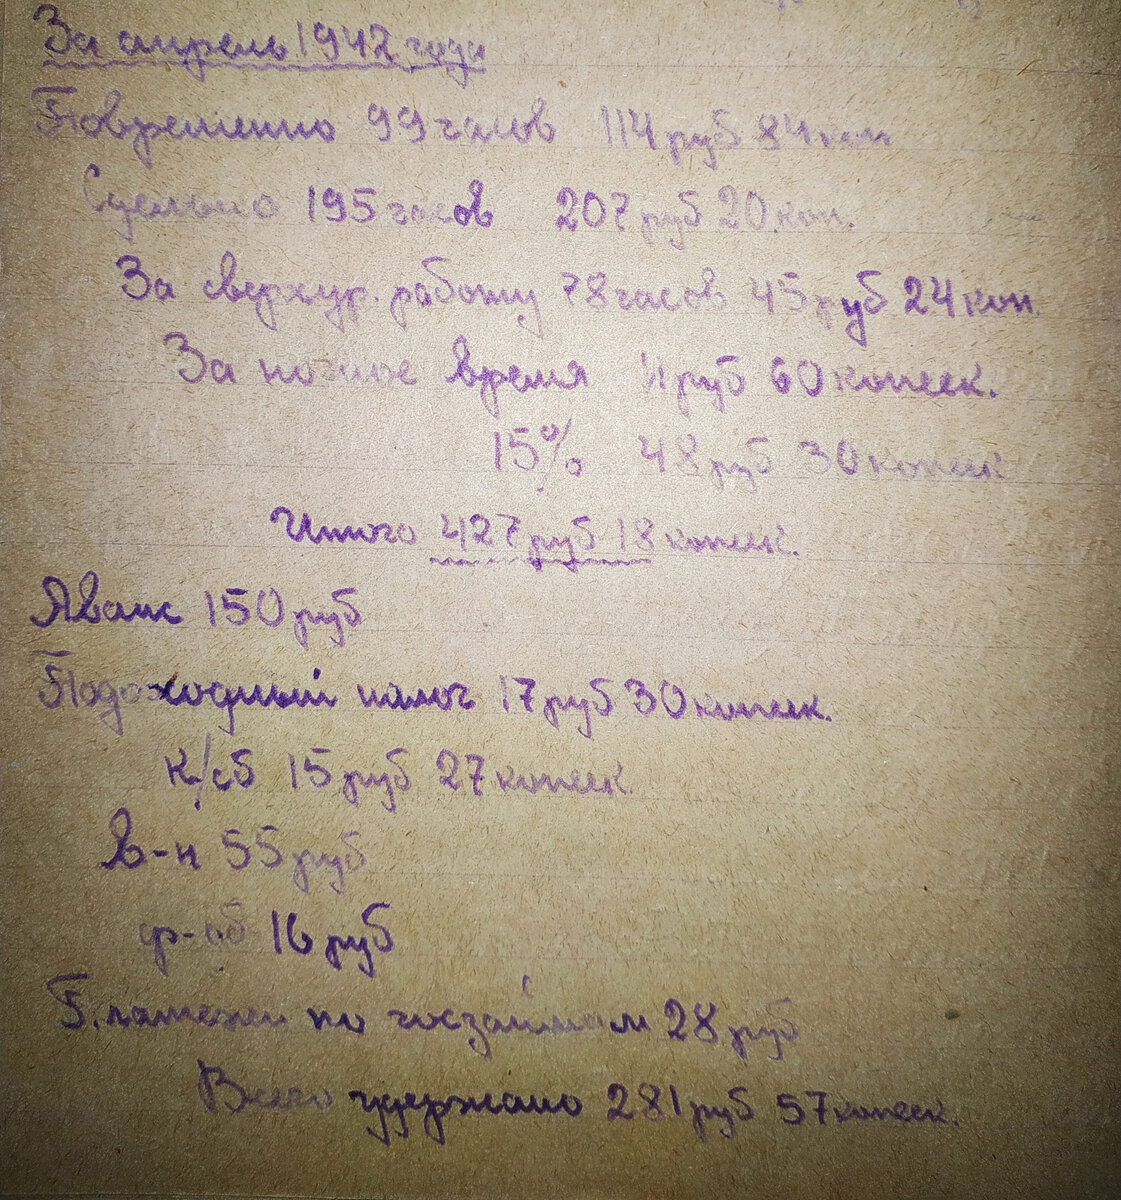 За апрель 1942 года
Повременно 99 часов 114 руб 84 коп
Сдельно 195 часов 207 руб 20 коп.
За сверхур. работу 78 часов 45 руб 24 коп.
За ночное время 11 руб 60 копеек.
15% 48 руб 30 копеек
Итого 427 руб 18 копеек.
Аванс 150 руб
Подоходный налог 17 руб 30 копеек.
к/сб 15 руб 27 копеек.
в-н 55 руб
16 руб
Платежи по госзаймам 28 руб
Всего удержано 281 руб 57 копеек.